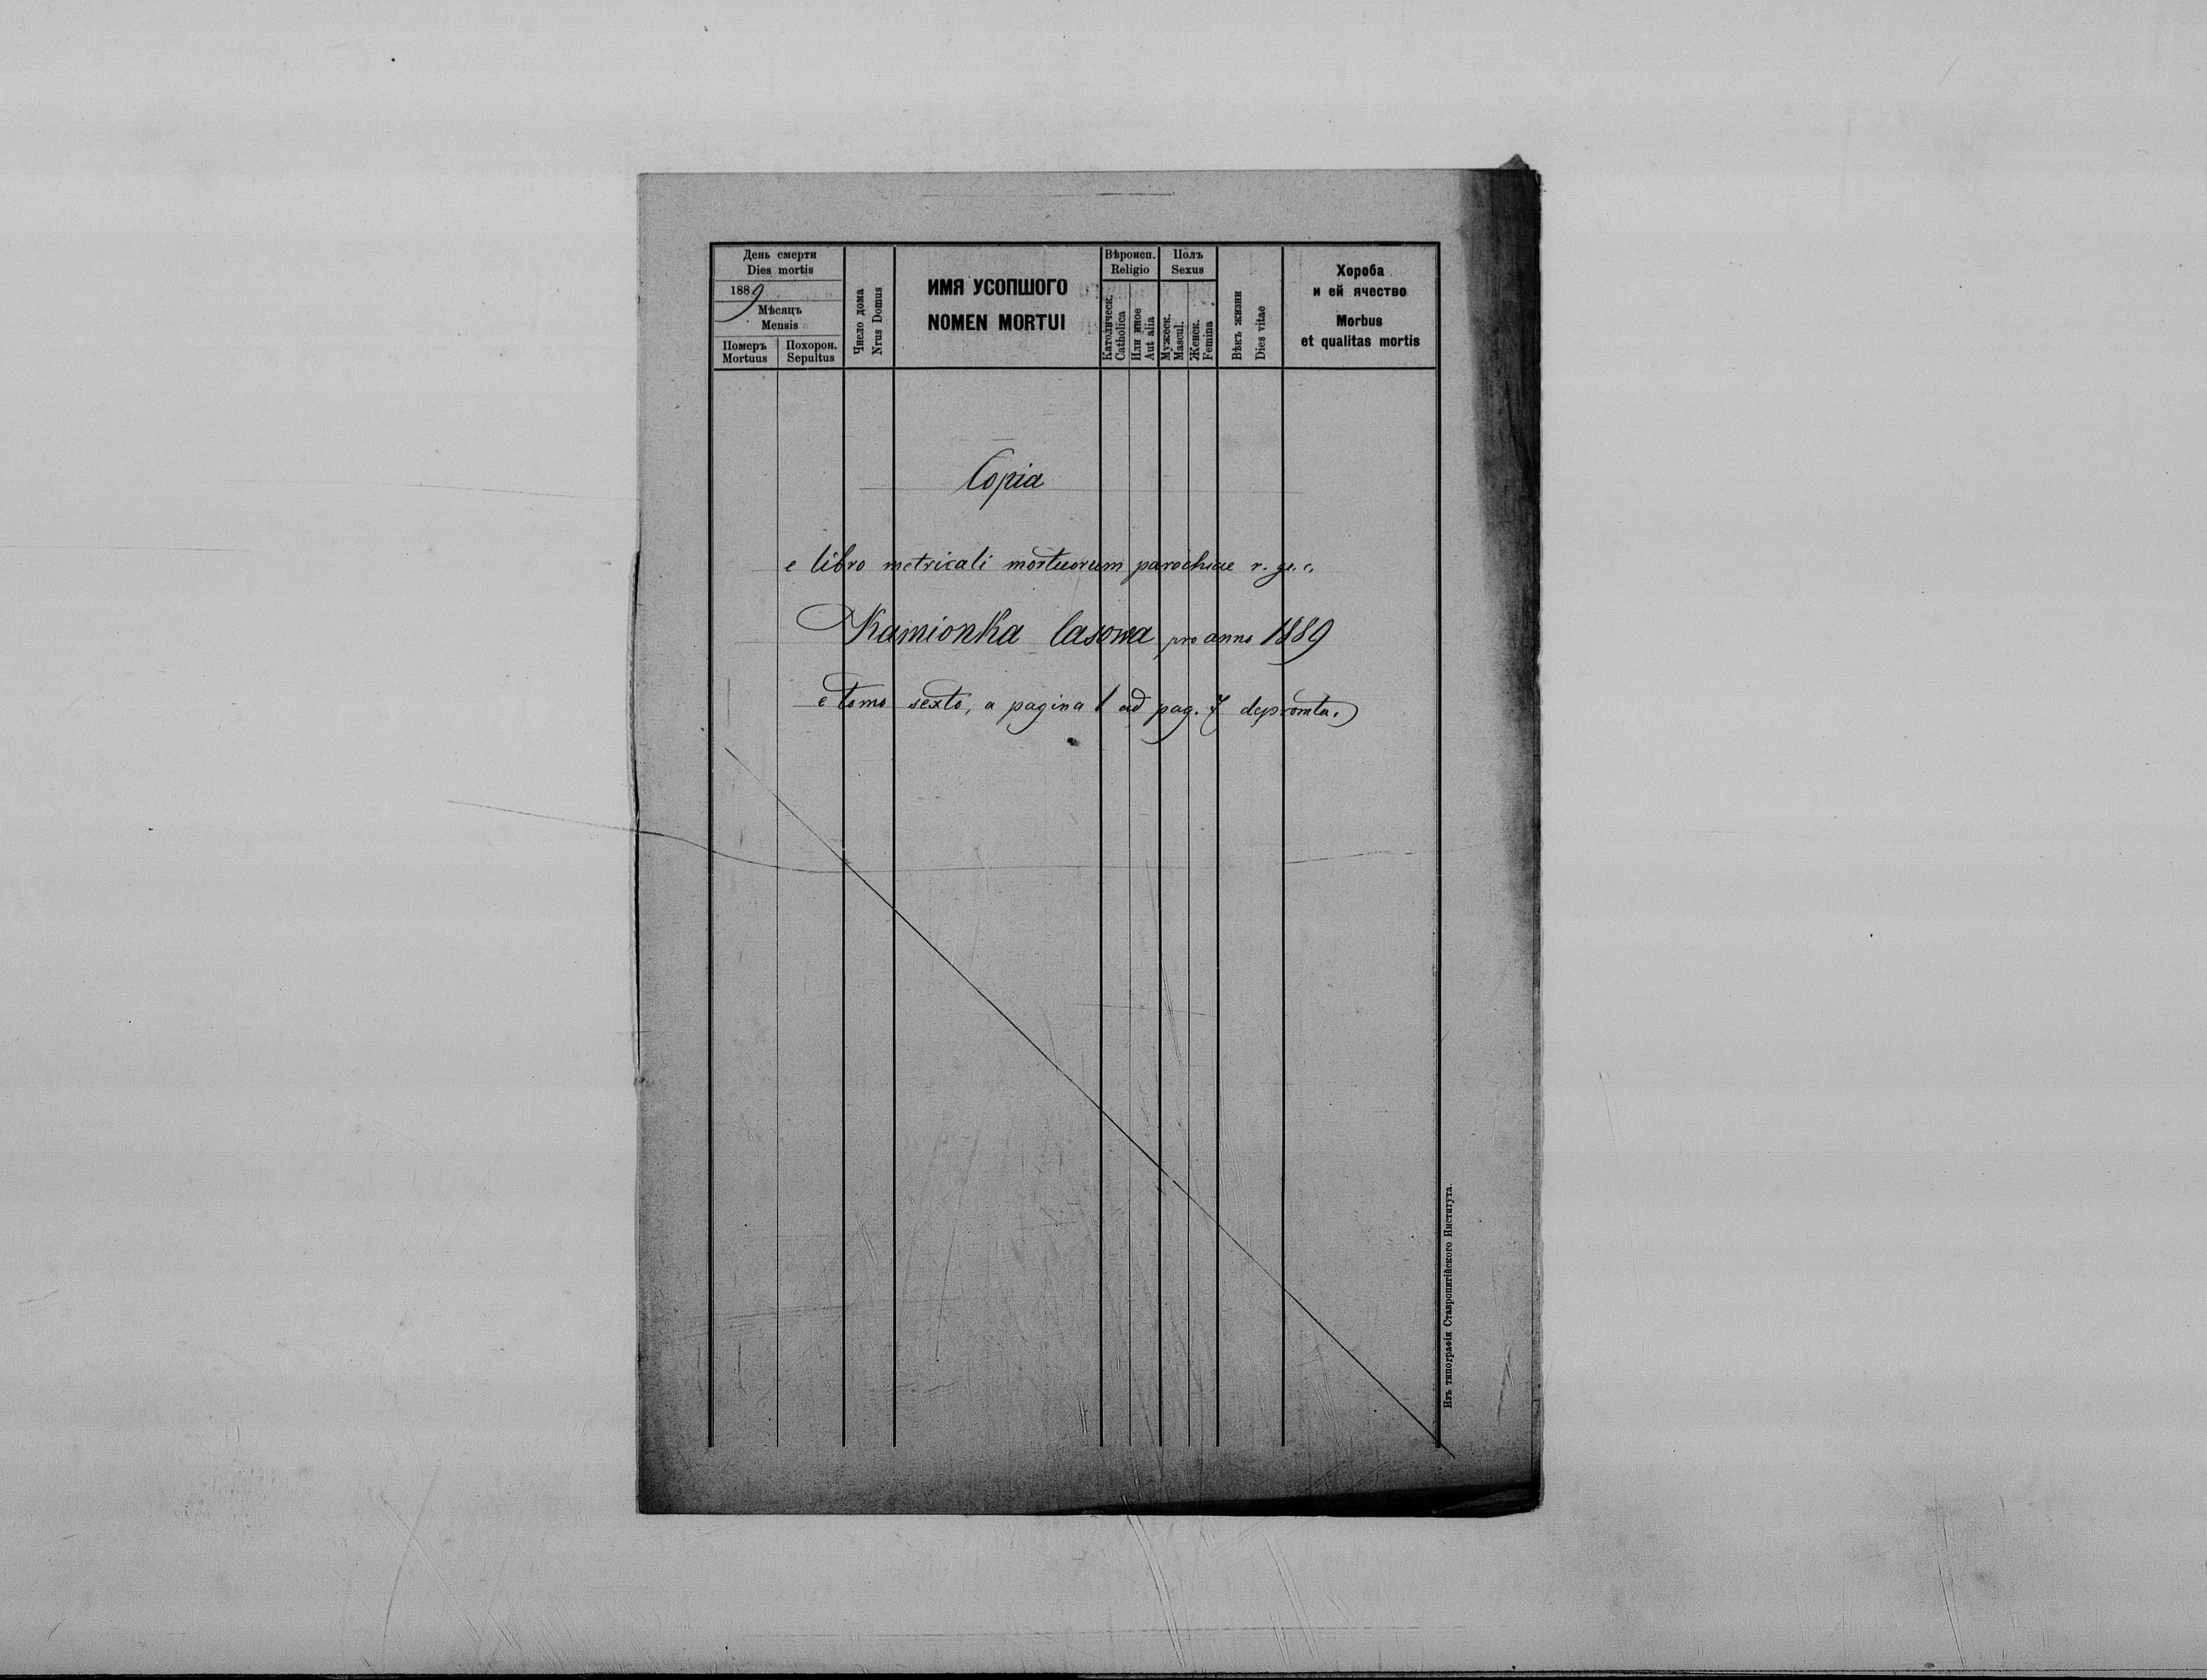 День смерти
Dies mortis
1889
Мѣсяцъ
Mensis
Померъ
Mortuus
Похорон.
Sepultus
Число дома
Nrus Domus
ИМЯ УСОПШОГО
NOMEN MORTUI
Вѣроисп.
Religio
Католическ.
Catholica
Или иное
Aut alia
Полъ
Sexus
Мужеск.
Mascul.
Женск.
Femina
Вѣкъ жизни
Dies vitae
Хороба
и ей ячество
Morbus
et qualitas mortis
Copia
e libro metricali mortuorum parochiae r. gr. c.
Kamionka lasowa pro anno 1889
e tomo sexto, a pagina 1 ad pag. 7 depromta.
Изъ типографіи Ставропигійского Института.